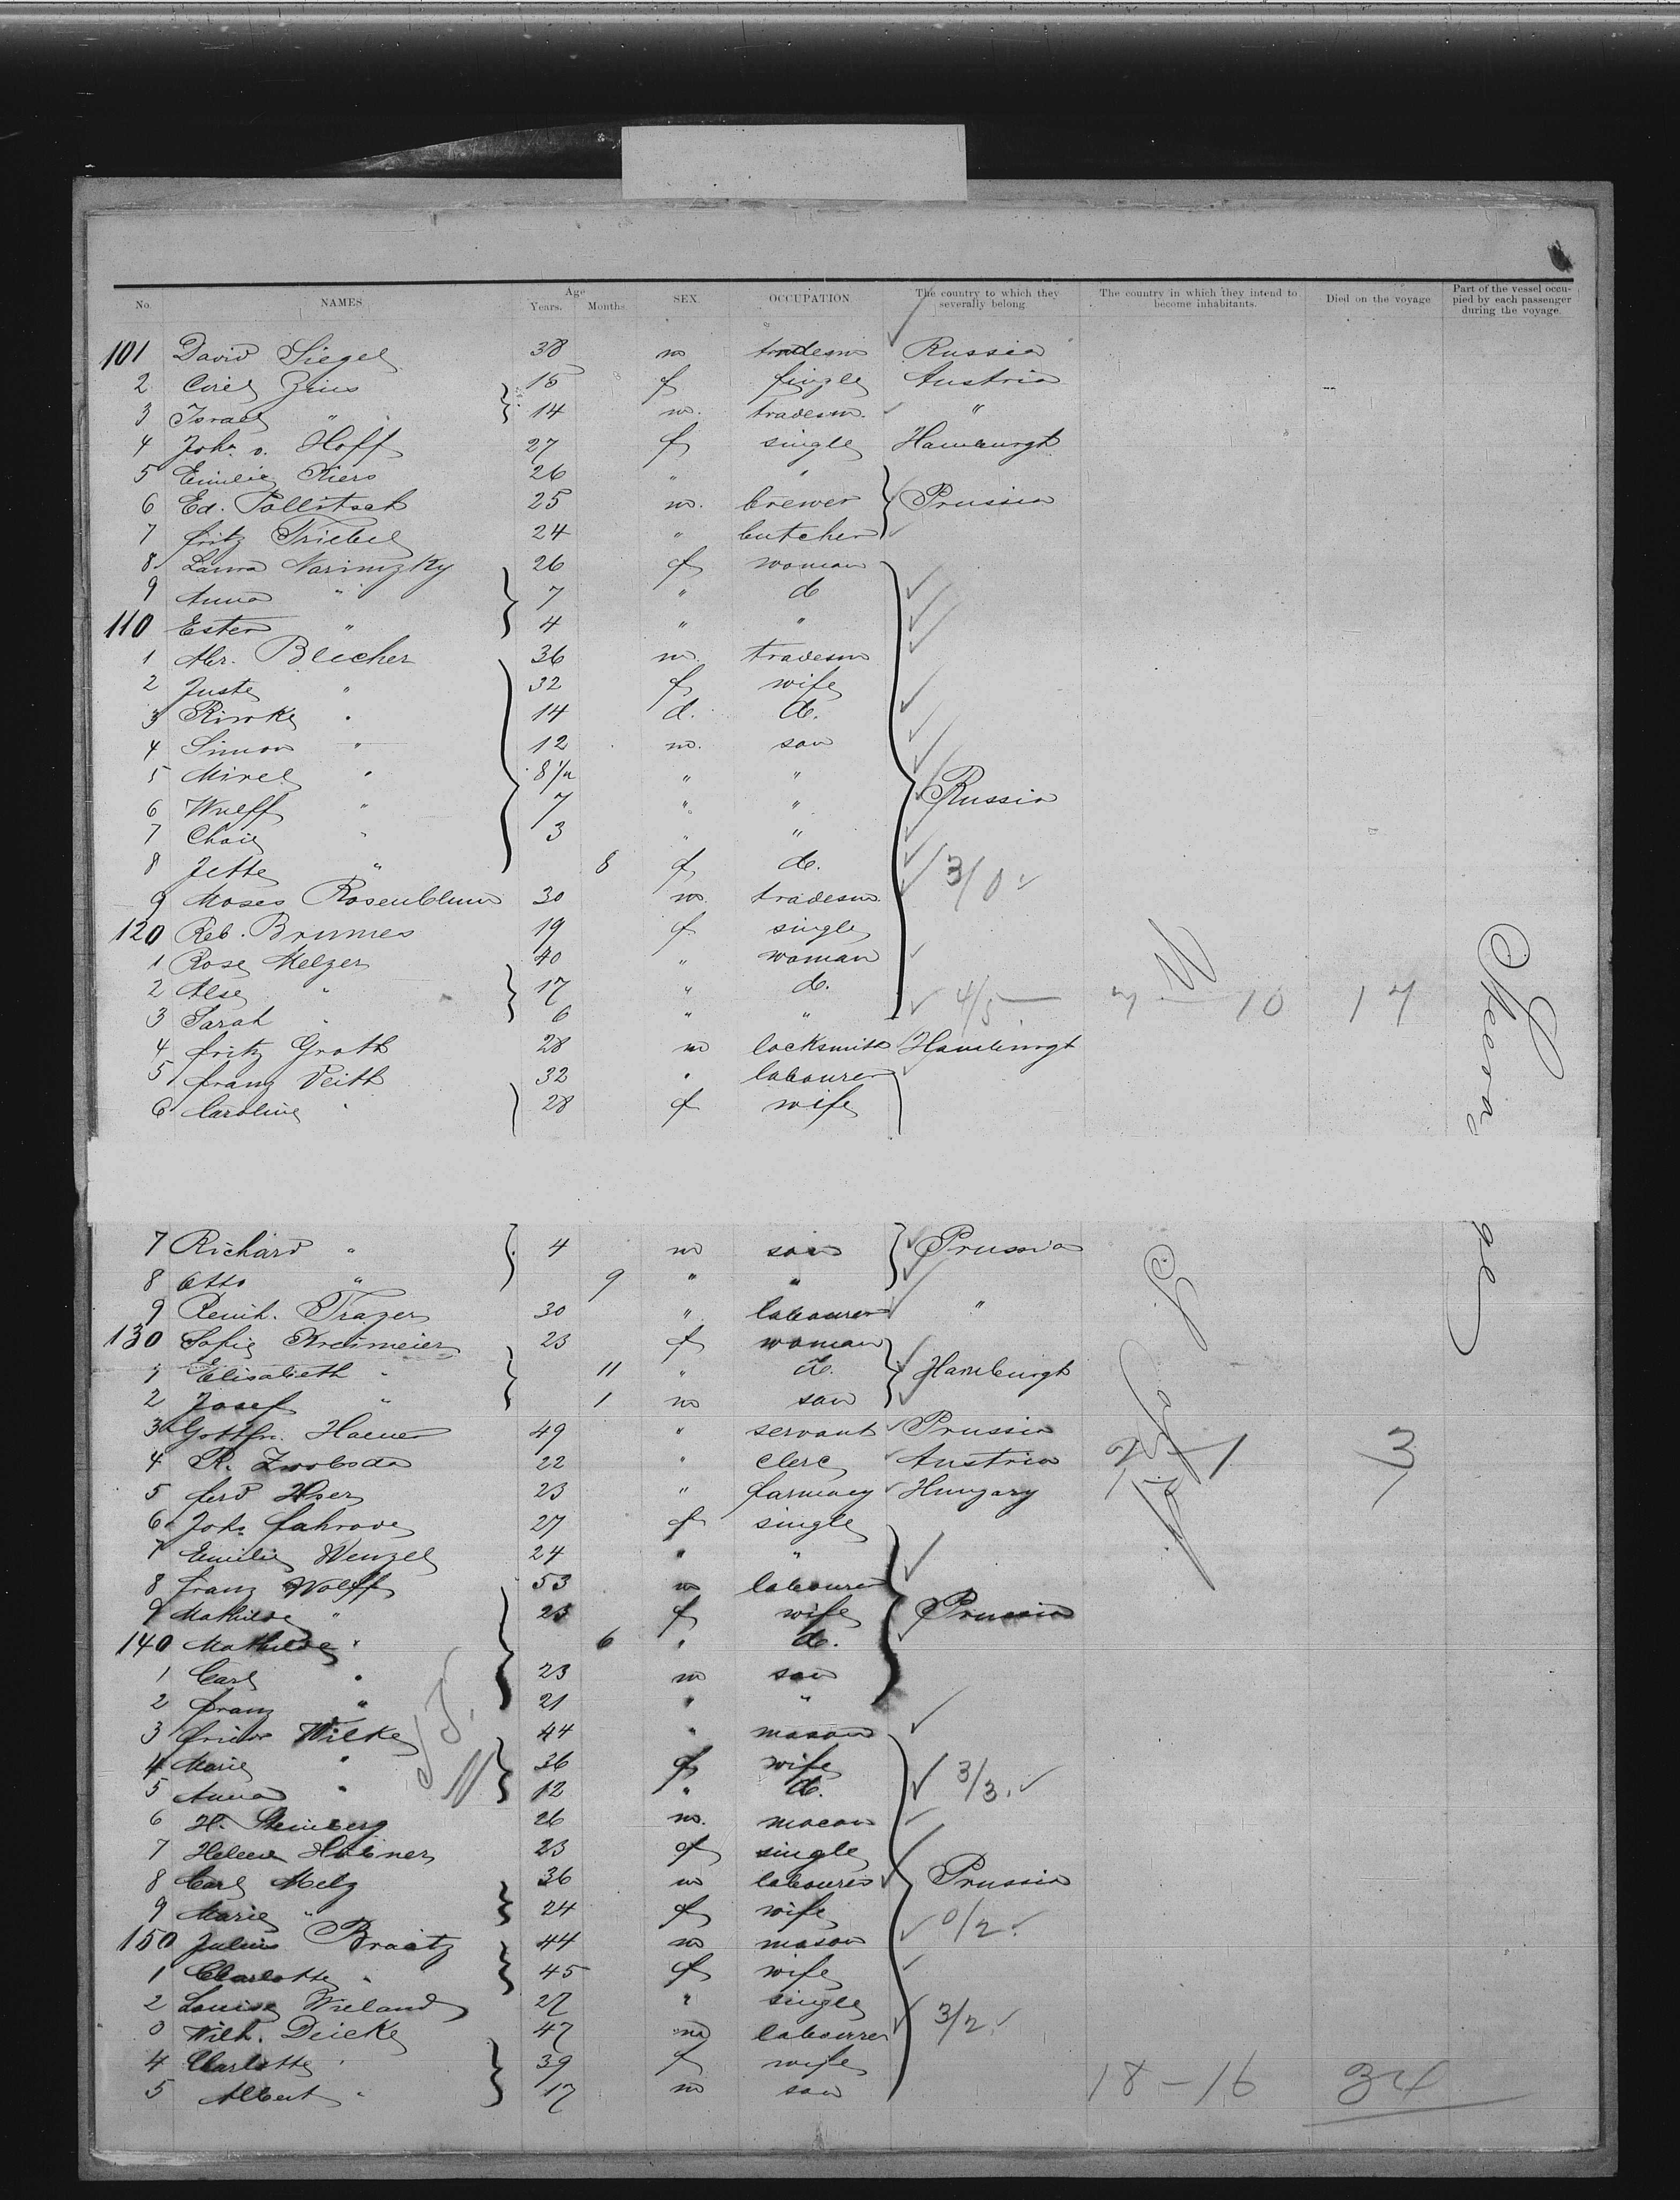 No. NAMES Age Years. Months. SEX OCCUPATION The country to which they severally belong The country in which they intend to become inhabitants. Died on the voyage Part of the vessel occupied by each passenger during the voyage.
101 David Siegel 38 m tradesm Russia
2 15 f single Austria
3 Israel " 14 m. tradesm. "
4 Joh. v. Hoff 27 f single Hamburgh
5 Emilie 26 " "
6 Ed. Pollitsch 25 m. brewer Prussia
7 fritz Triebel 24 " butcher
8. Laura 26 f woman
9 Anna " 7 " do
110 Ester " 4 " "
1 Abr. Blecher 36 m. tradesm
2 Juste " 32 f wife
3 Riwke " 14 d. do.
4 Simon " 12 m. son
5 Mirel " 8 1/2 " "
6 Wulff " 7 " " Russia
7 " 3 " "
8 Jette " 8 f do.
9 Moses Rosenblum 30 m. tradesm. 3/0
120 Reb. Brumes 19 f single
1 Rose Melzer 40 " woman
2 Else " 17 " do. 4/5 7 — 10 17
3 Sarah " 6 " "
4 fritz Groth 28 m locksmith Hamburgh
5 franz Veith 32 " labourer
6 Caroline " 28 f wife
Steerage
7 Richard " 4 m son Prussia
8 Otto " 9 " "
9 Reinh. Trager 30 " labourer "
130 Sofie 23 f woman
1 Elisabeth " 11 " do. Hamburgh
2 Josef " 1 m son
3 Gottfr. 49 " servant Prussia
4 R. Zwoboda 22 " clerc Austria 2 — 1 3
5 ferd 23 " Hungary
6 Joh. 27 f single
7 Emilie Wenzel 24 " "
8 franz Wolff 53 m labourer
9 Mathilde " 25 f wife Prussia
140 Mathilde " 6 " do.
1 Carl " 23 m son
2 franz " 21 " "
3 Wilke 44 " mason
4 Marie " 36 f wife 3/3.
5 Anna " 12 " do.
6 H. Steinberg 26 m. mason
7 Helene Hübner 23 f single
8 Carl Melz 36 m labourer Prussia
9 Marie " 24 f wife 0/2.
150 Julius Braatz 44 m mason
1 Charlotte " 45 f wife
2 Louise Wieland 27 " single
3 Wilh. Deicke 47 m labourer 3/2.
4 Charlotte " 39 f wife
5 Albert " 17 m son 18 — 16 34